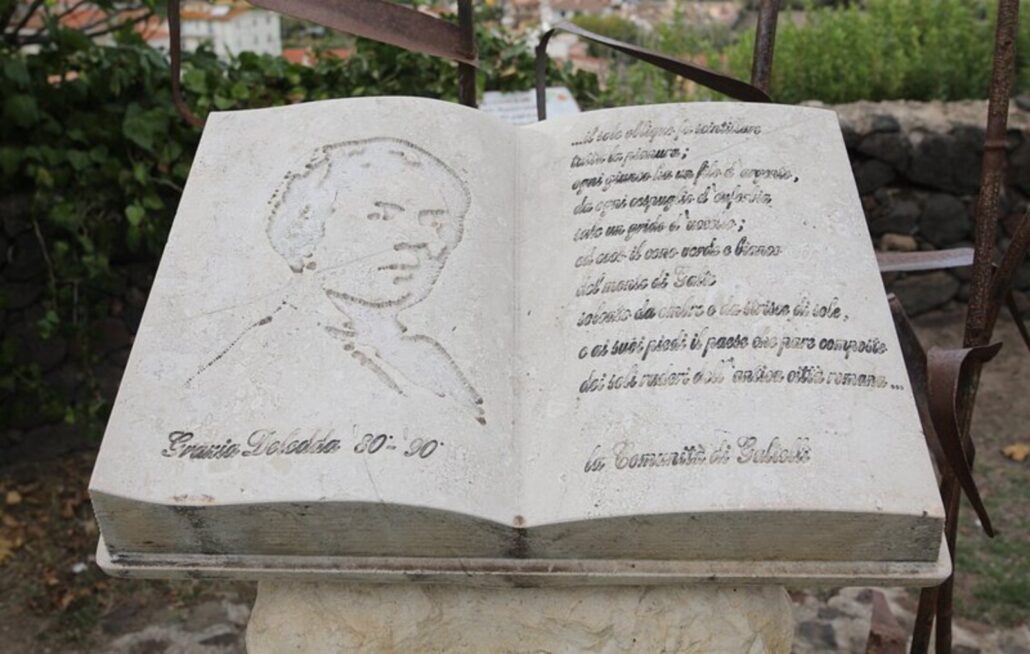 Grazia Deledda 80°- 90°
...il sole obliquo fa scintillare
tutta la pianura;
ogni giunco ha un filo d'argento,
da ogni cespuglio d'euforbia
sale un grido d'uccello;
ed ecco il cono verde e bianco
del monte di Galte
solcato da ombre e da strisce di sole,
e ai suoi piedi il paese che pare composto
dei soli ruderi dell'antica città romana...
la Comunità di Galtellì